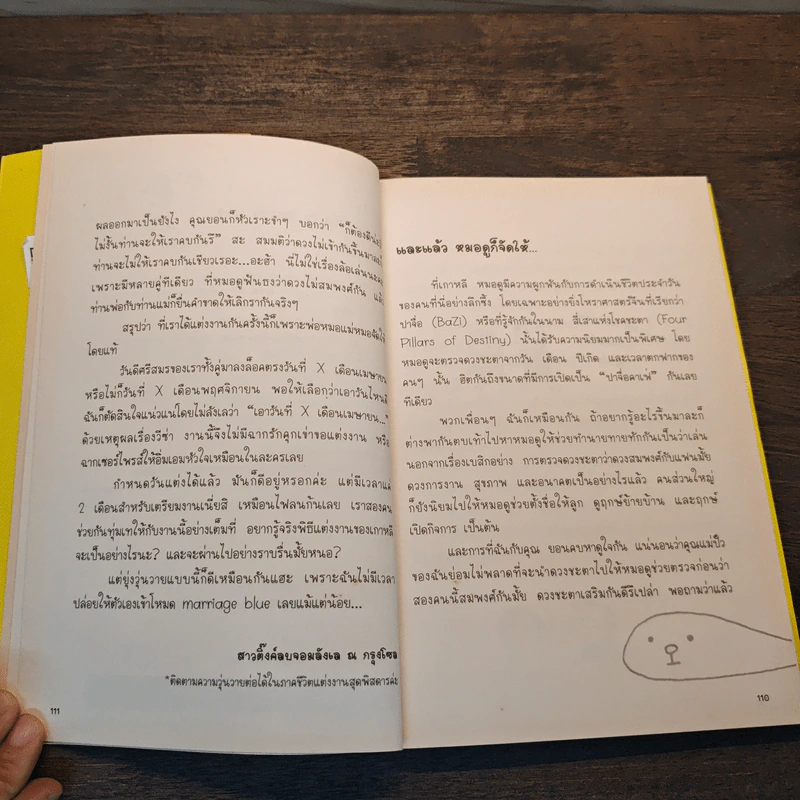 และแล้ว หมอดูก็จัดให้...
ที่เกาหลี หมอดูมีความผูกพันกับการดำเนินชีวิตประจำวัน
ของคนที่นี่อย่างลึกซึ้ง โดยเฉพาะอย่างยิ่งโหราศาสตร์จีนที่เรียกว่า
ปาจื่อ (BaZi) หรือที่รู้จักกันในนาม สี่เสาแห่งโชคชะตา (Four
Pillars of Destiny) นั้นได้รับความนิยมมากเป็นพิเศษ โดย
หมอดูจะตรวจดวงชะตาจากวัน เดือน ปีเกิด และเวลาตกฟากของ
คนๆ นั้น ฮิตกันถึงขนาดที่มีการเปิดเป็น “ปาจื่อคาเฟ่” กันเลย
ทีเดียว
พวกเพื่อนๆ ฉันก็เหมือนกัน ถ้าอยากรู้อะไรขึ้นมาละก็
ต่างพากันตบเท้าไปหาหมอดูให้ช่วยทำนายทายทักกันเป็นว่าเล่น
นอกจากเรื่องเบสิกอย่าง การตรวจดวงชะตาว่าดวงสมพงศ์กับแฟนมั้ย
ดวงการงาน สุขภาพ และอนาคตเป็นอย่างไรแล้ว คนส่วนใหญ่
ก็ยังนิยมไปให้หมอดูช่วยตั้งชื่อให้ลูก ดูฤกษ์ย้ายบ้าน และฤกษ์
เปิดกิจการ เป็นต้น
และการที่ฉันกับคุณ ยอนคบหาดูใจกัน แน่นอนว่าคุณแม่ปั๋ว
ของฉันย่อมไม่พลาดที่จะนำดวงชะตาไปให้หมอดูช่วยตรวจก่อนว่า
สองคนนี้สมพงศ์กันมั้ย ดวงชะตาเสริมกันดีรึเปล่า พอถามว่าแล้ว
110
ผลออกมาเป็นยังไง คุณยอนก็หัวเราะขำๆ บอกว่า “ก็ต้องดีน่ะสิ
ไม่งั้นท่านจะให้เราคบกันรึ” สะ สมมติว่าดวงไม่เข้ากันขึ้นมาละก็
ท่านจะไม่ให้เราคบกันเชียวเรอะ...อะฮ้า นี่ไม่ใช่เรื่องล้อเล่นนะคะ
เพราะมีหลายคู่ทีเดียว ที่หมอดูฟันธงว่าดวงไม่สมพงศ์กัน แล้ว
ท่านพ่อกับท่านแม่ก็ยื่นคำขาดให้เลิกรากันจริงๆ
สรุปว่า ที่เราได้แต่งงานกันครั้งนี้ก็เพราะพ่อหมอแม่หมอจัดให้
โดยแท้
วันดีศรีสมรของเราทั้งคู่มาลงล็อคตรงวันที่ X เดือนเมษายน
หรือไม่ก็วันที่ X เดือนพฤศจิกายน พอให้เลือกว่าเอาวันไหนดี
ฉันก็ตัดสินใจแน่วแน่โดยไม่ลังเลว่า “เอาวันที่ X เดือนเมษายน...”
ด้วยเหตุผลเรื่องวีซ่า งานนี้จึงไม่มีฉากรักคุกเข่าขอแต่งงาน หรือ
ฉากเซอร์ไพรส์ให้อิ่มเอมหัวใจเหมือนในละครเลย
กำหนดวันแต่งได้แล้ว มันก็ดีอยู่หรอกค่ะ แต่มีเวลาแค่
2 เดือนสำหรับเตรียมงานเนี่ยสิ เหมือนไฟลนก้นเลย เราสองคน
ช่วยกันทุ่มเทให้กับงานนี้อย่างเต็มที่ อยากรู้จริงพิธีแต่งงานของเกาหลี
จะเป็นอย่างไรนะ? และจะผ่านไปอย่างราบรื่นมั้ยหนอ?
แต่ยุ่งวุ่นวายแบบนี้ก็ดีเหมือนกันแฮะ เพราะฉันไม่มีเวลา
ปล่อยให้ตัวเองเข้าโหมด marriage blue เลยแม้แต่น้อย...
สาวติ๊งค์ลยจอมลังเล ณ กรุงโซล
*ติดตามความวุ่นวายต่อได้ในภาคชีวิตแต่งงานสุดพิสดารค่ะ
111